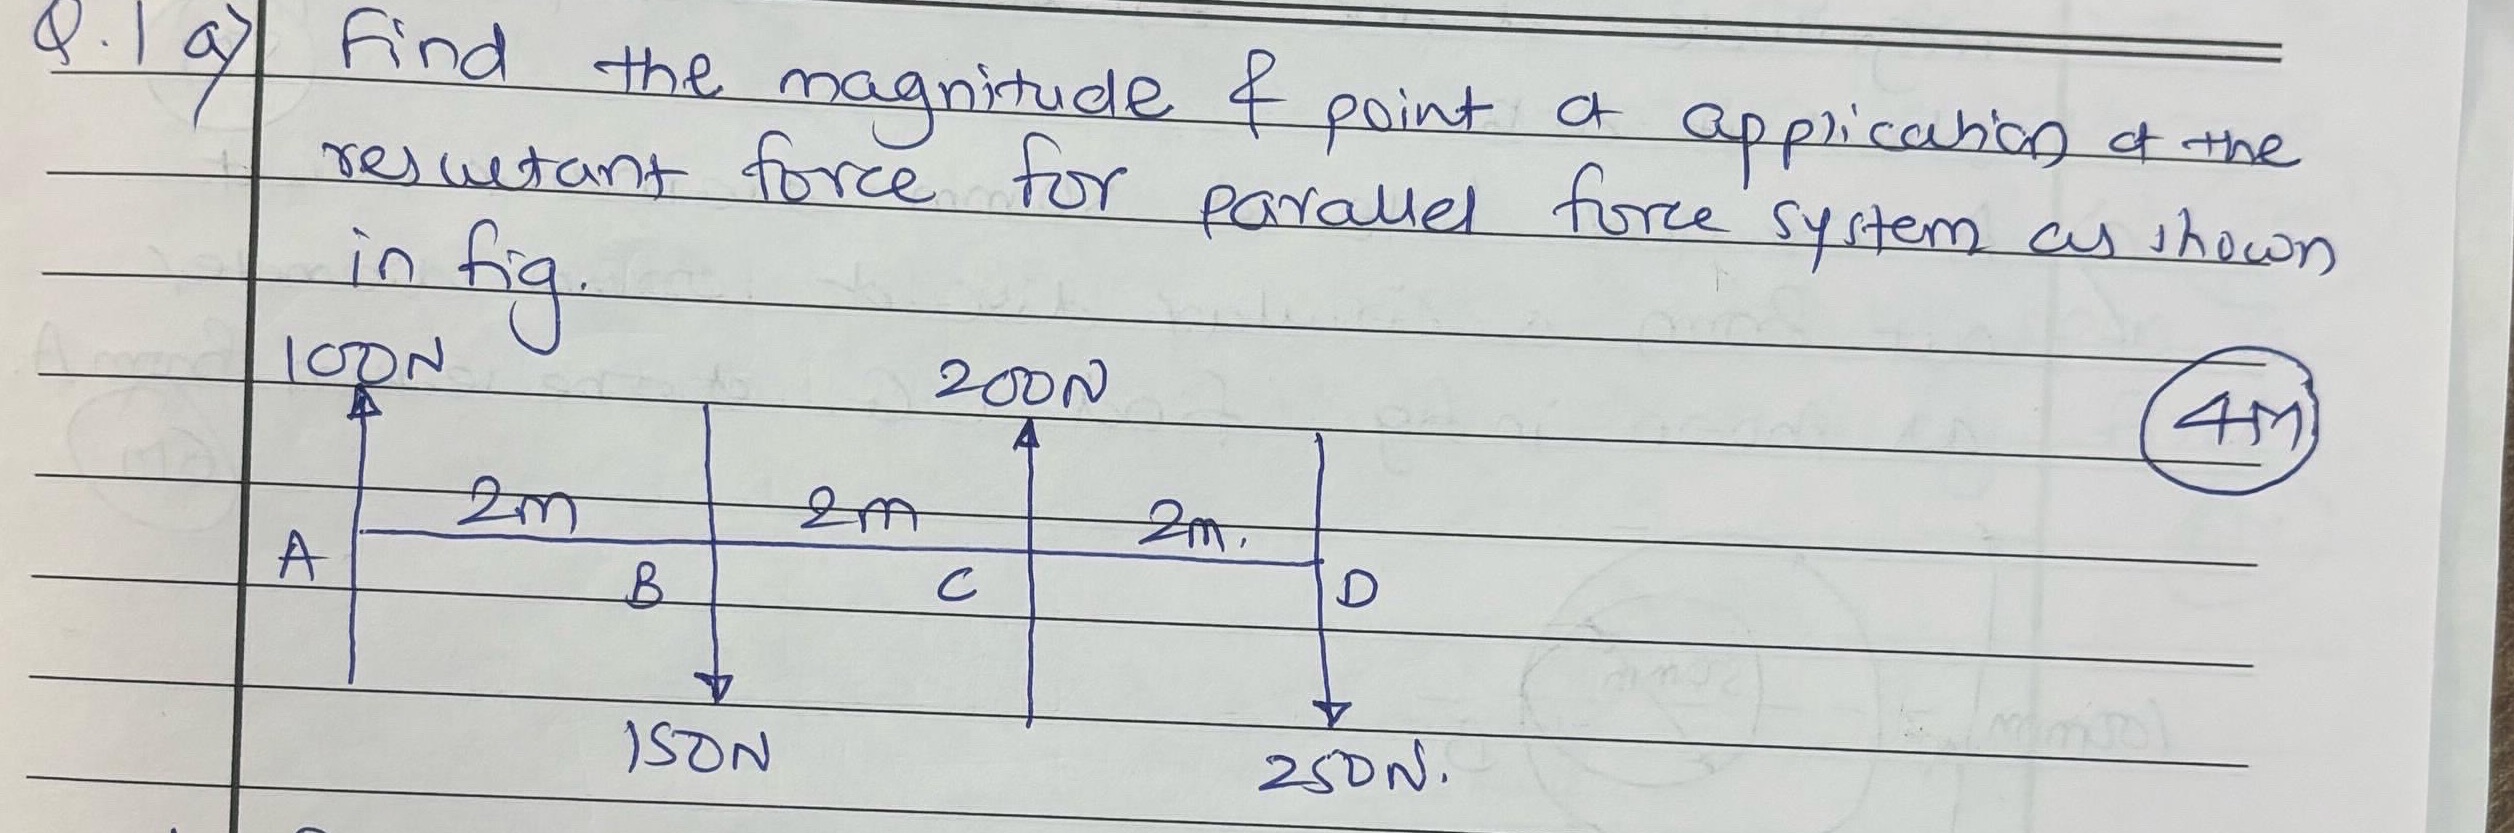 Q.1 a) Find the magnitude & point of application of the
resultant force for parallel force system as shown
in fig.
100N 200N
4M
2m 2m 2m.
A B C D
150N 250N.